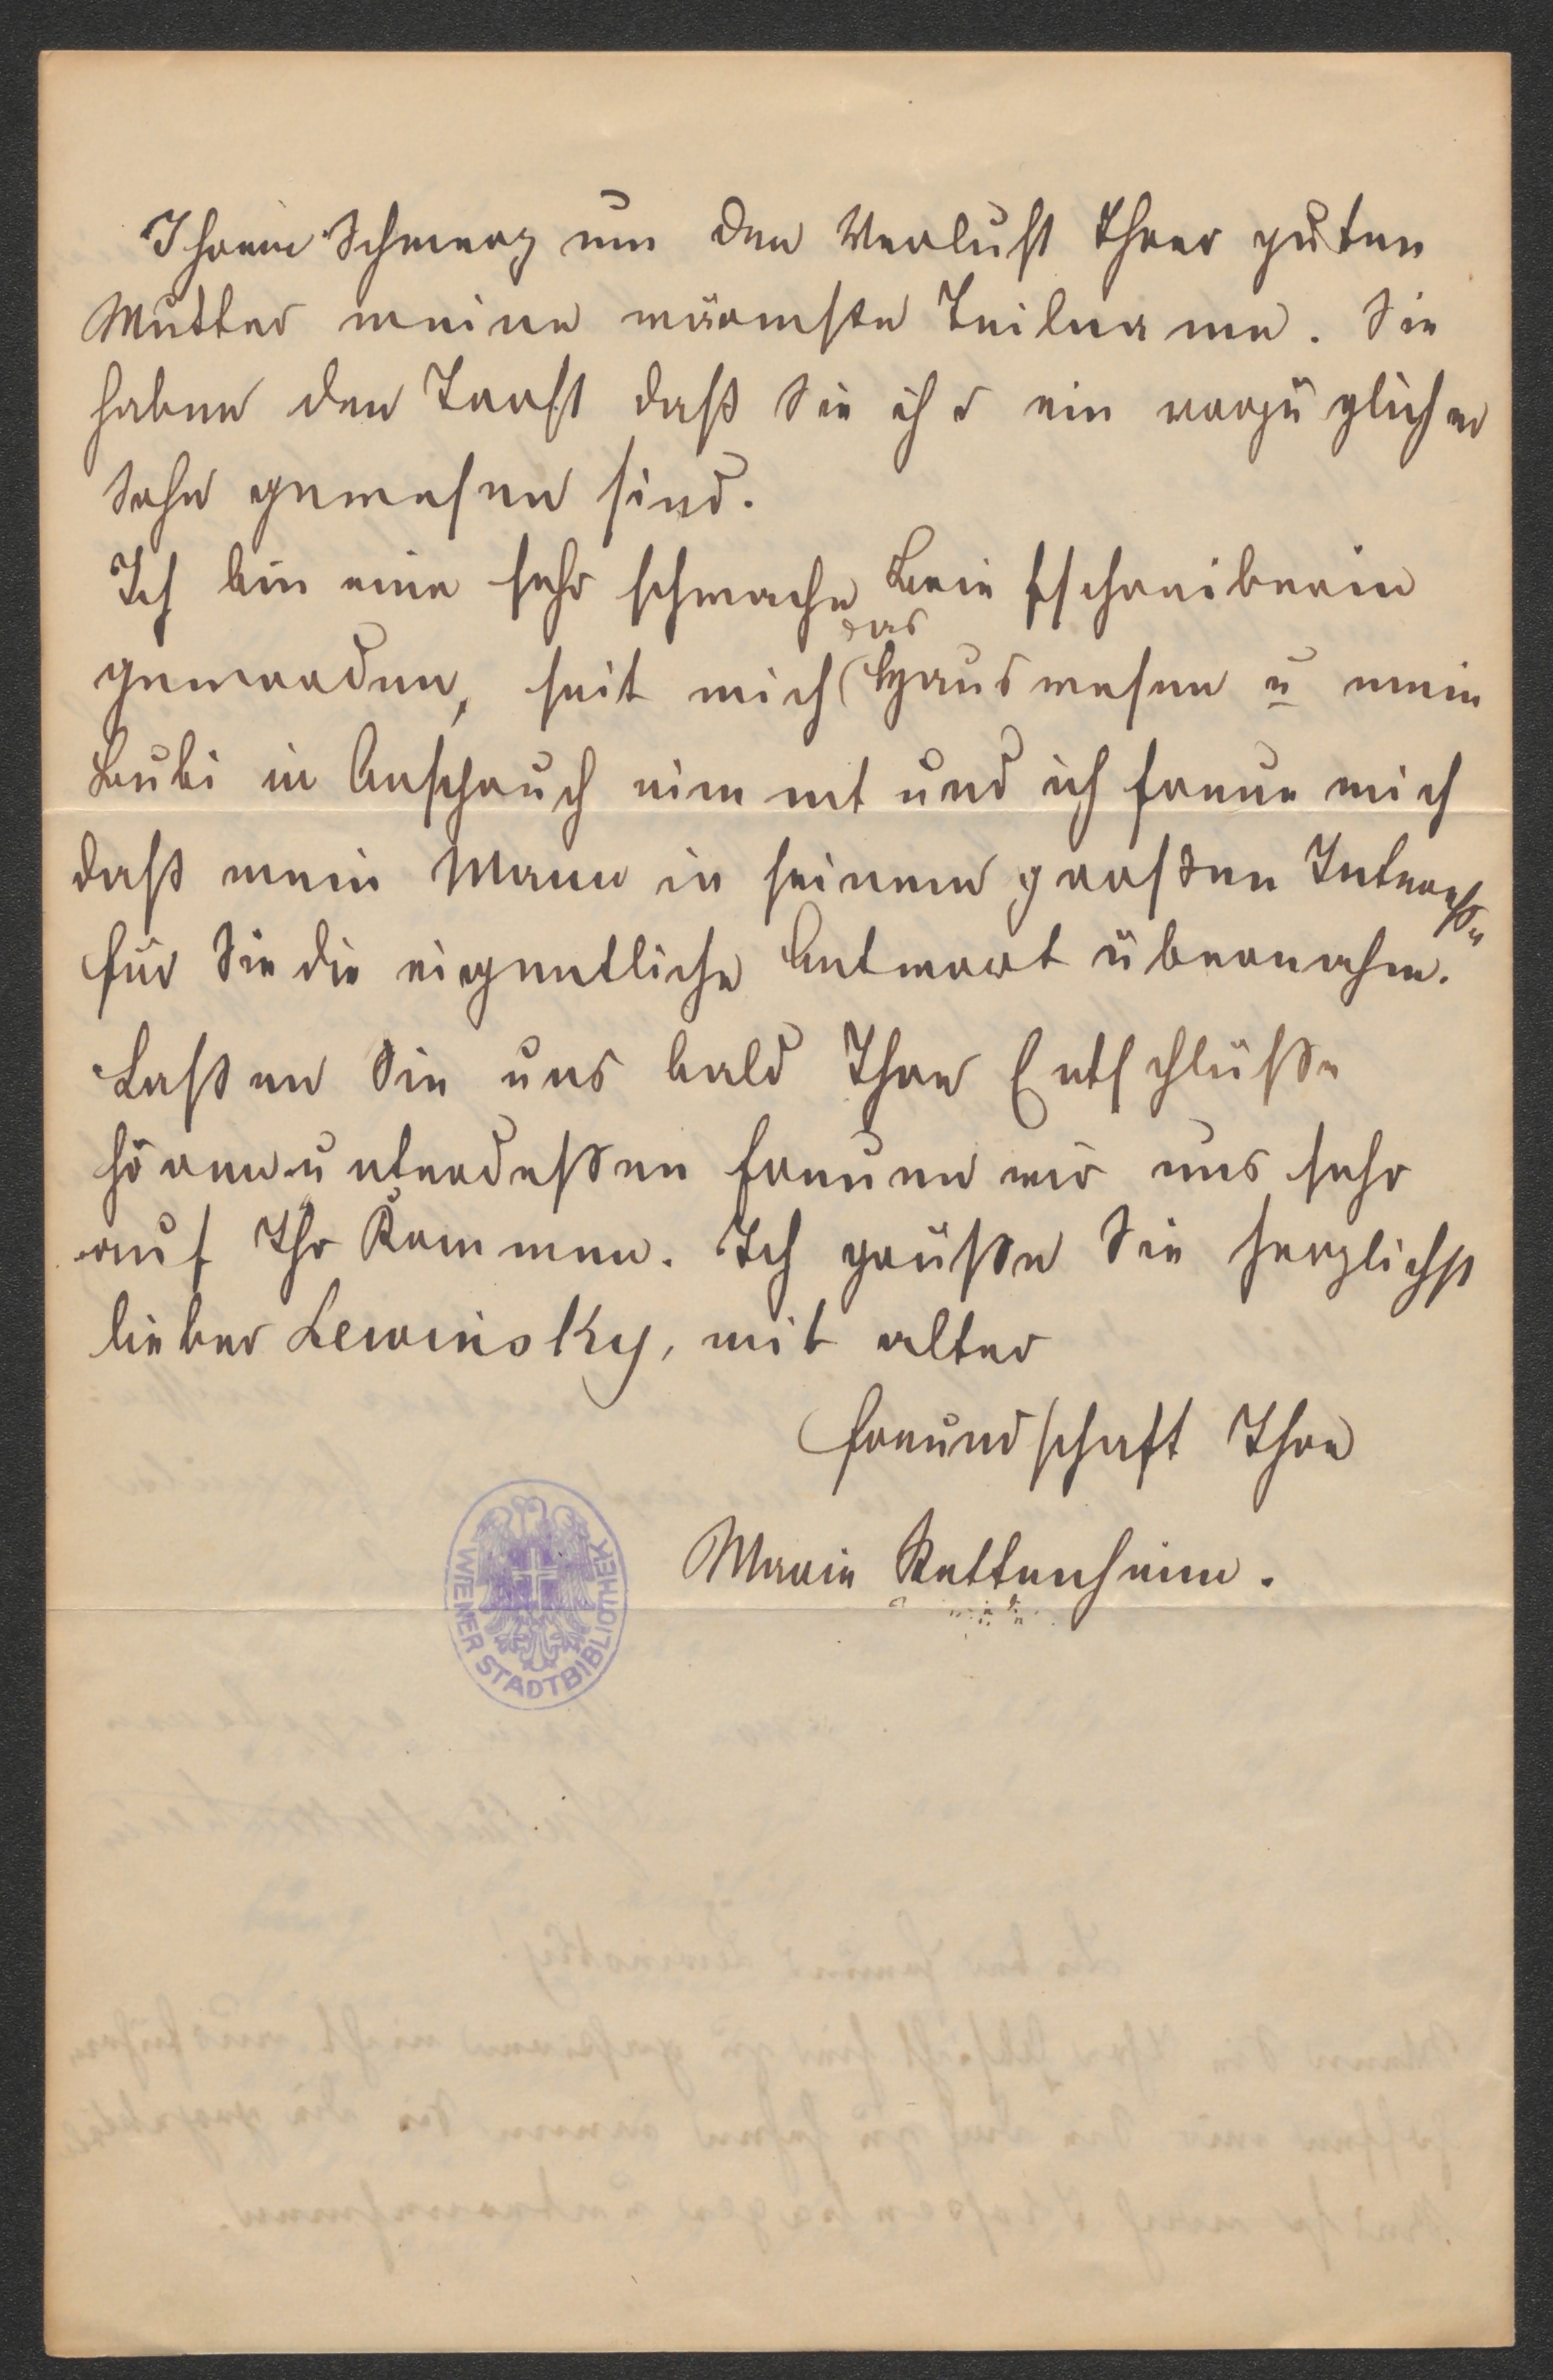 Ihrem Schmerz um den Verlust Ihrer guten
Mutter meine wärmste Teilname. Sie
haben den Trost daß Sie ihr ein vorzüglicher
Sohn gewesen sind.
Ich bin eine sehr schwache Briefschreiberin
geworden, seit mich das Hauswesen u mein
Bubi in Anspruch nimmt und ich freue mich
daß mein Mann in seinem großen Intereße
für Sie die eigentliche Antwort übernahm.
Laßen Sie uns bald Ihre Entschlüße
hören unterdeßen freuen wir uns sehr
auf Ihr Kommen. Ich grüße Sie herzlichst
lieber Lewinsky, mit alter
Freundschaft Ihre
Marie Rettenheim.
WIENER STADTBIBLIOTHEK